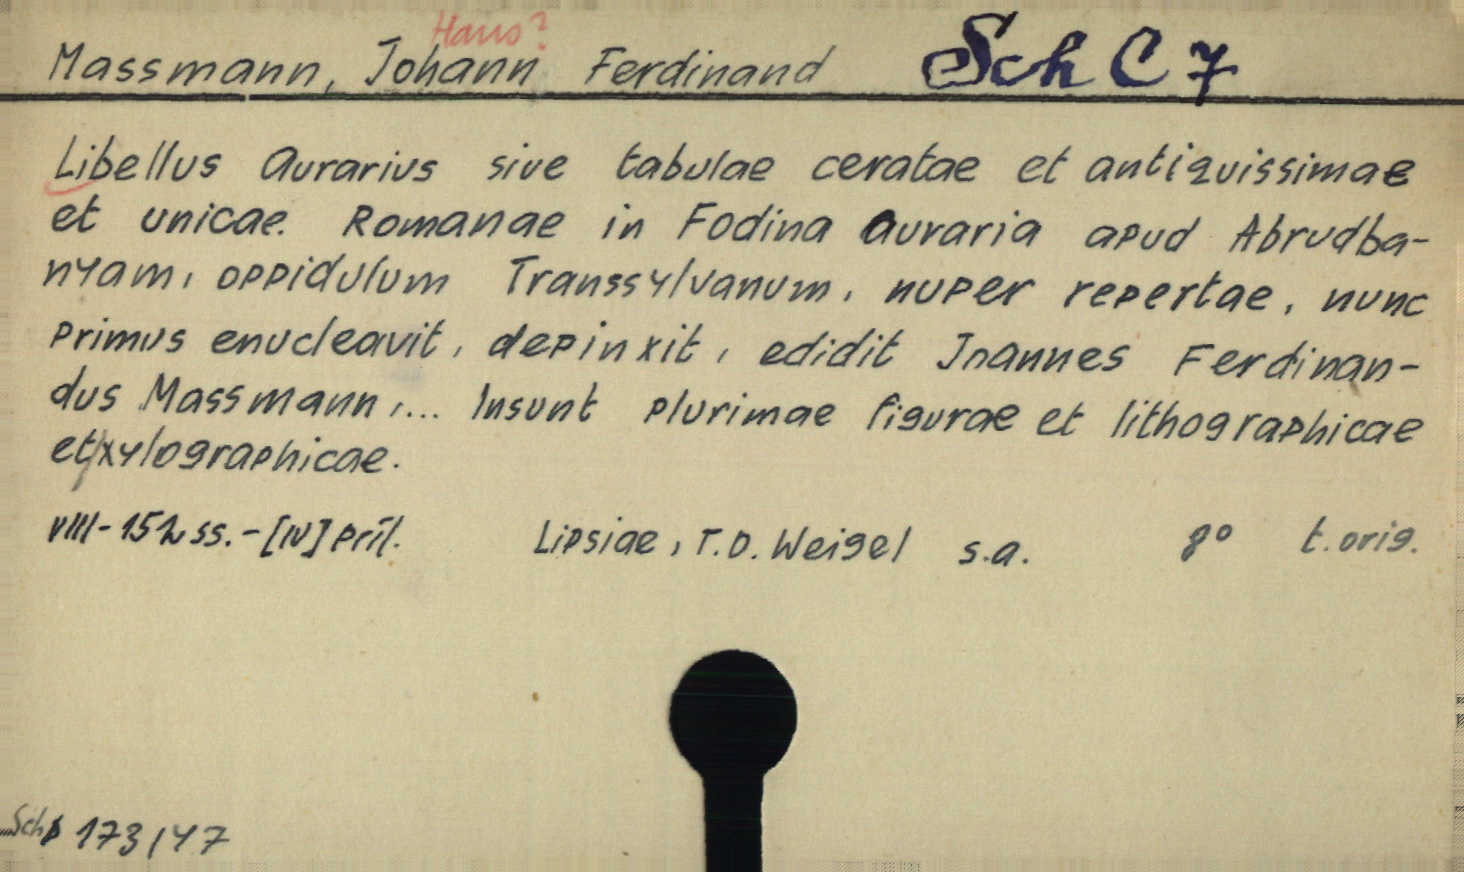 Hans?
Massmann, Johann Ferdinand Sch C 7
Libellus Aurarius sive tabulae ceratae et antiquissimae
et unicae. Romanae in Fodina Auraria apud Abrudba-
nyam, oppidulum Transsylvanum, nuper repertae, nunc
primus enucleavit, depinxit, edidit Joannes Ferdinan-
dus Massmann,... Insunt plurimae figurae et lithographicae
et xylographicae.
VIII-152 ss.-[IV] pril. Lipsiae, T.O. Weigel s.a. 8° t. orig.
Sch 173/47